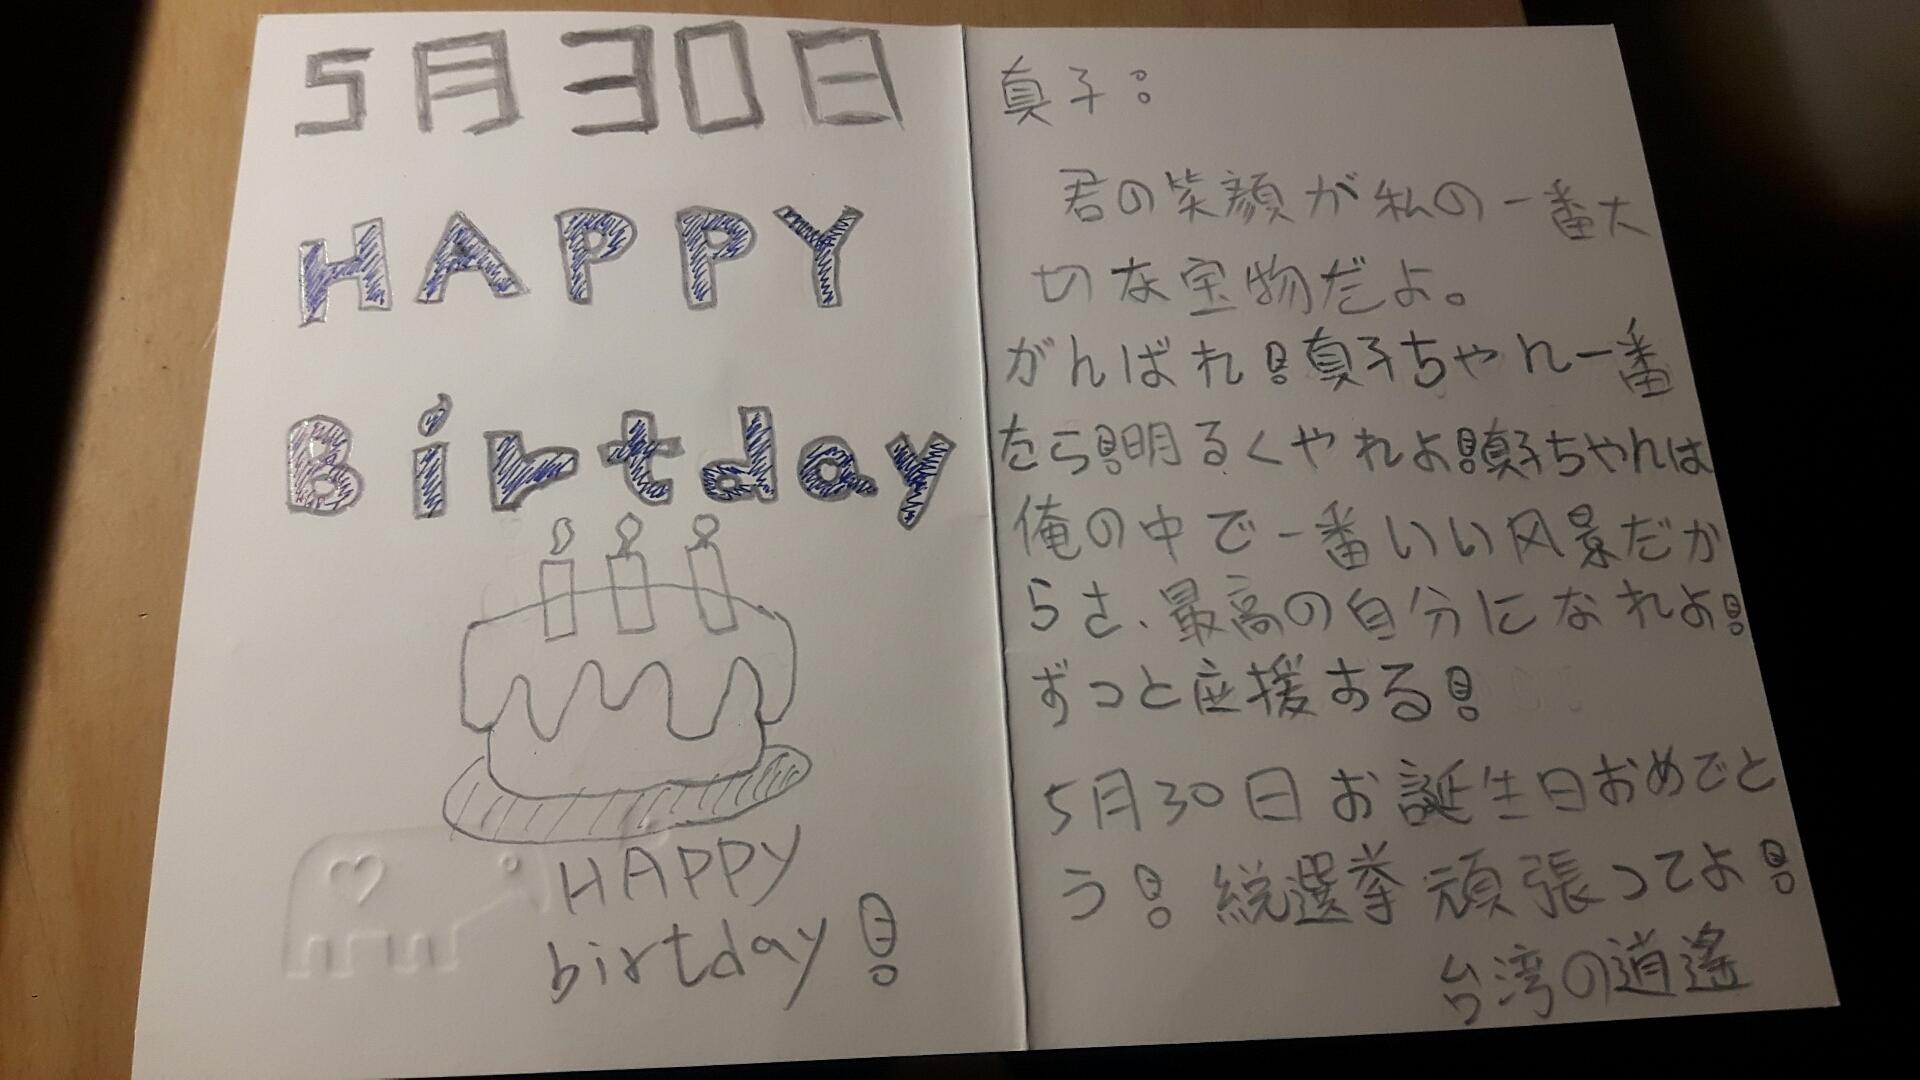 5月30日
HAPPY
Birtday
HAPPY
birtday!
真子:
君の笑顔が私の一番大
切な宝物だよ。
がんばれ!真子ちゃん一番
たら!明るくやれよ!真子ちゃんは
俺の中で一番いい风景だか
らさ、最高の自分になれよ!
ずっと応援する!
5月30日お誕生日おめでと
う!総選挙頑張ってよ!
台湾の逍遙